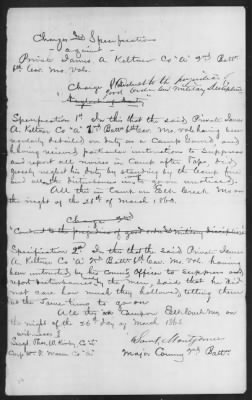 Charges and Specifications
- against -
Private James A Keltner Co "A" 2nd Batt
6th Cav. Mo. Vols.
Charge 1st Prejudicial to the
good order and military discipline
"Neglect of duty"
Specification 1st In this that the said Private James
A. Keltner Co "A" 2nd Batt 6th Cav. Mo. Vols having been
regularly detailed on duty as a Camp Guard, and
having received particular instructions to suppress
and report all noises in Camp after Taps did,
grossly neglect his duty by standing by the Camp fire
and
All this in Camp on Elk Creek Mo on
the night of the 26th of March 1863.
Charge 2nd
"Conduct to the prejudice of good order and military discipline"
Specification 2nd In this that the said Private James
A Keltner Co "A" 2nd Batt 6th Cav. Mo. Vol. having
been instructed by his Comdg Officer to suppress and
report disturbances by the men, said that he did
not care how much they hallowed, telling them
at the same time to go on
All this in Camp on Elk Creek Mo. on
the night of the 26th day of March 1863
witnesses
Sergt. Thos. W. Kirby Co "A"
Corp. Mason Co "A"
Saml Montgomery
Major Comdg 2nd Batt.